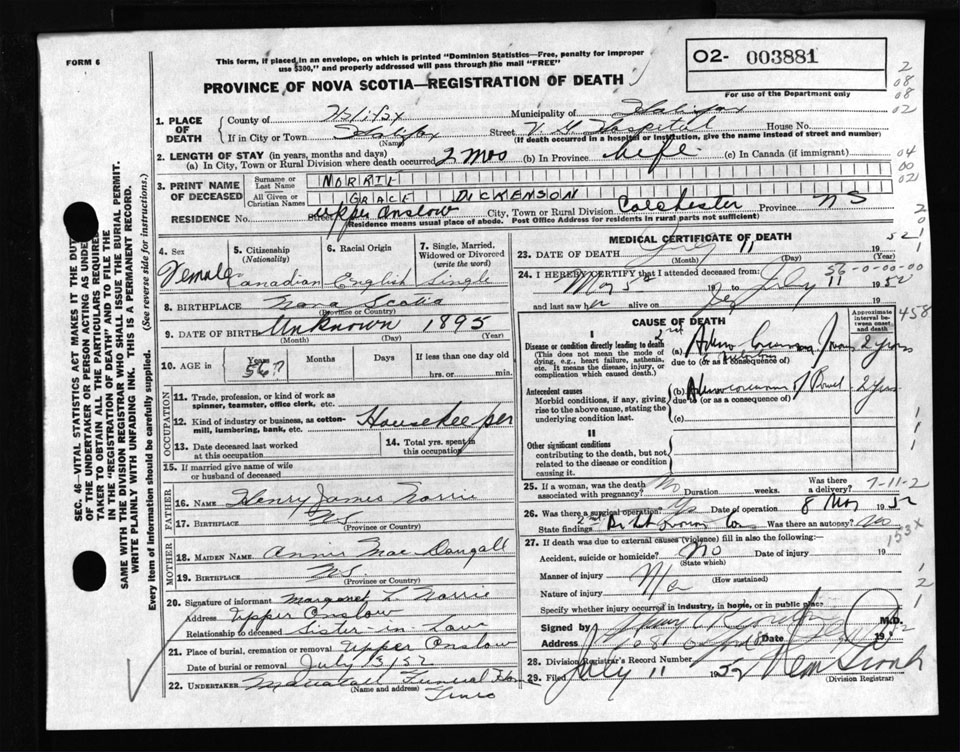 FORM 6
This form, if placed in an envelope, on which is printed "Dominion Statistics—Free, penalty for improper
use $300," and properly addressed will pass through the mail "FREE"
O2- 003881
For use of the Department only
PROVINCE OF NOVA SCOTIA—REGISTRATION OF DEATH
2
08
08
02
1. PLACE OF DEATH
County of Halifax Municipality of Halifax
If in City or Town Halifax Street V. G. Hospital House No.
(Name) (If death occurred in a hospital or institution, give the name instead of street and number)
2. LENGTH OF STAY (in years, months and days)
(a) In City, Town or Rural Division where death occurred 2 mos (b) In Province Life (c) In Canada (if immigrant)
04
00
021
3. PRINT NAME OF DECEASED
Surname or Last Name NORRIE
All Given or Christian Names GRACE DICKENSON
RESIDENCE No. Street Upper Onslow City, Town or Rural Division Colchester Province N S
(Residence means usual place of abode. Post Office Address for residents in rural parts not sufficient)
4. Sex Female
5. Citizenship (Nationality) Canadian
6. Racial Origin English
7. Single, Married, Widowed or Divorced (write the word) Single
8. BIRTHPLACE Nova Scotia
(Province or Country)
9. DATE OF BIRTH Unknown 1895
(Month) (Day) (Year)
10. AGE in Years 56? Months Days If less than one day old
hrs. or min.
OCCUPATION
11. Trade, profession, or kind of work as
spinner, teamster, office clerk, etc.
12. Kind of industry or business, as cotton-
mill, lumbering, bank, etc. Housekeeper
13. Date deceased last worked at this occupation
14. Total yrs. spent in this occupation
15. If married give name of wife
or husband of deceased
FATHER
16. NAME Henry James Norrie
17. BIRTHPLACE N.S.
(Province or Country)
MOTHER
18. MAIDEN NAME Annie MacDougall
19. BIRTHPLACE N.S.
(Province or Country)
20. Signature of informant Margaret L. Norrie
Address Upper Onslow
Relationship to deceased Sister-in-Law
21. Place of burial, cremation or removal Upper Onslow
Date of burial or removal July 13/52
22. UNDERTAKER Funeral Home
(Name and address) Truro
MEDICAL CERTIFICATE OF DEATH
23. DATE OF DEATH July 11 1952
(Month) (Day) (Year)
56-0-00-00
24. I HEREBY CERTIFY that I attended deceased from:
May 5 to July 11 1952
and last saw her alive on July 19
458
CAUSE OF DEATH
Approximate interval between onset and death
I
Disease or condition directly leading to death
(This does not mean the mode of dying, e.g., heart failure, asthenia, etc. It means the disease, injury, or complication which caused death.)
(a) 2 years
due to (or as a consequence of)
Antecedent causes
Morbid conditions, if any, giving rise to the above cause, stating the underlying condition last.
(b) Adenocarcinoma of Bowel 2 yrs
due to (or as a consequence of)
(c)
II
Other significant conditions
contributing to the death, but not related to the disease or condition causing it.
25. If a woman, was the death associated with pregnancy? No Duration weeks. Was there a delivery?
7-11-2
26. Was there a surgical operation? Yes Date of operation 8 May 1952
State findings Was there an autopsy? No
153X
27. If death was due to external causes (violence) fill in also the following:—
Accident, suicide or homicide? No Date of injury 19
(State which)
Manner of injury N/a
(How sustained)
Nature of injury
Specify whether injury occurred in industry, in home, or in public place
Signed by M.D.
Address Date 19
28. Division Registrar's Record Number
29. Filed July 11 1952
(Division Registrar)
SEC. 46—VITAL STATISTICS ACT MAKES IT THE DUTY
OF THE UNDERTAKER OR PERSON ACTING AS UNDER-
TAKER TO OBTAIN ALL THE PARTICULARS REQUIRED
IN THE "REGISTRATION OF DEATH" AND TO FILE THE
SAME WITH THE DIVISION REGISTRAR WHO SHALL ISSUE THE BURIAL PERMIT.
WRITE PLAINLY WITH UNFADING INK. THIS IS A PERMANENT RECORD.
Every item of Information should be carefully supplied. (See reverse side for instructions.)